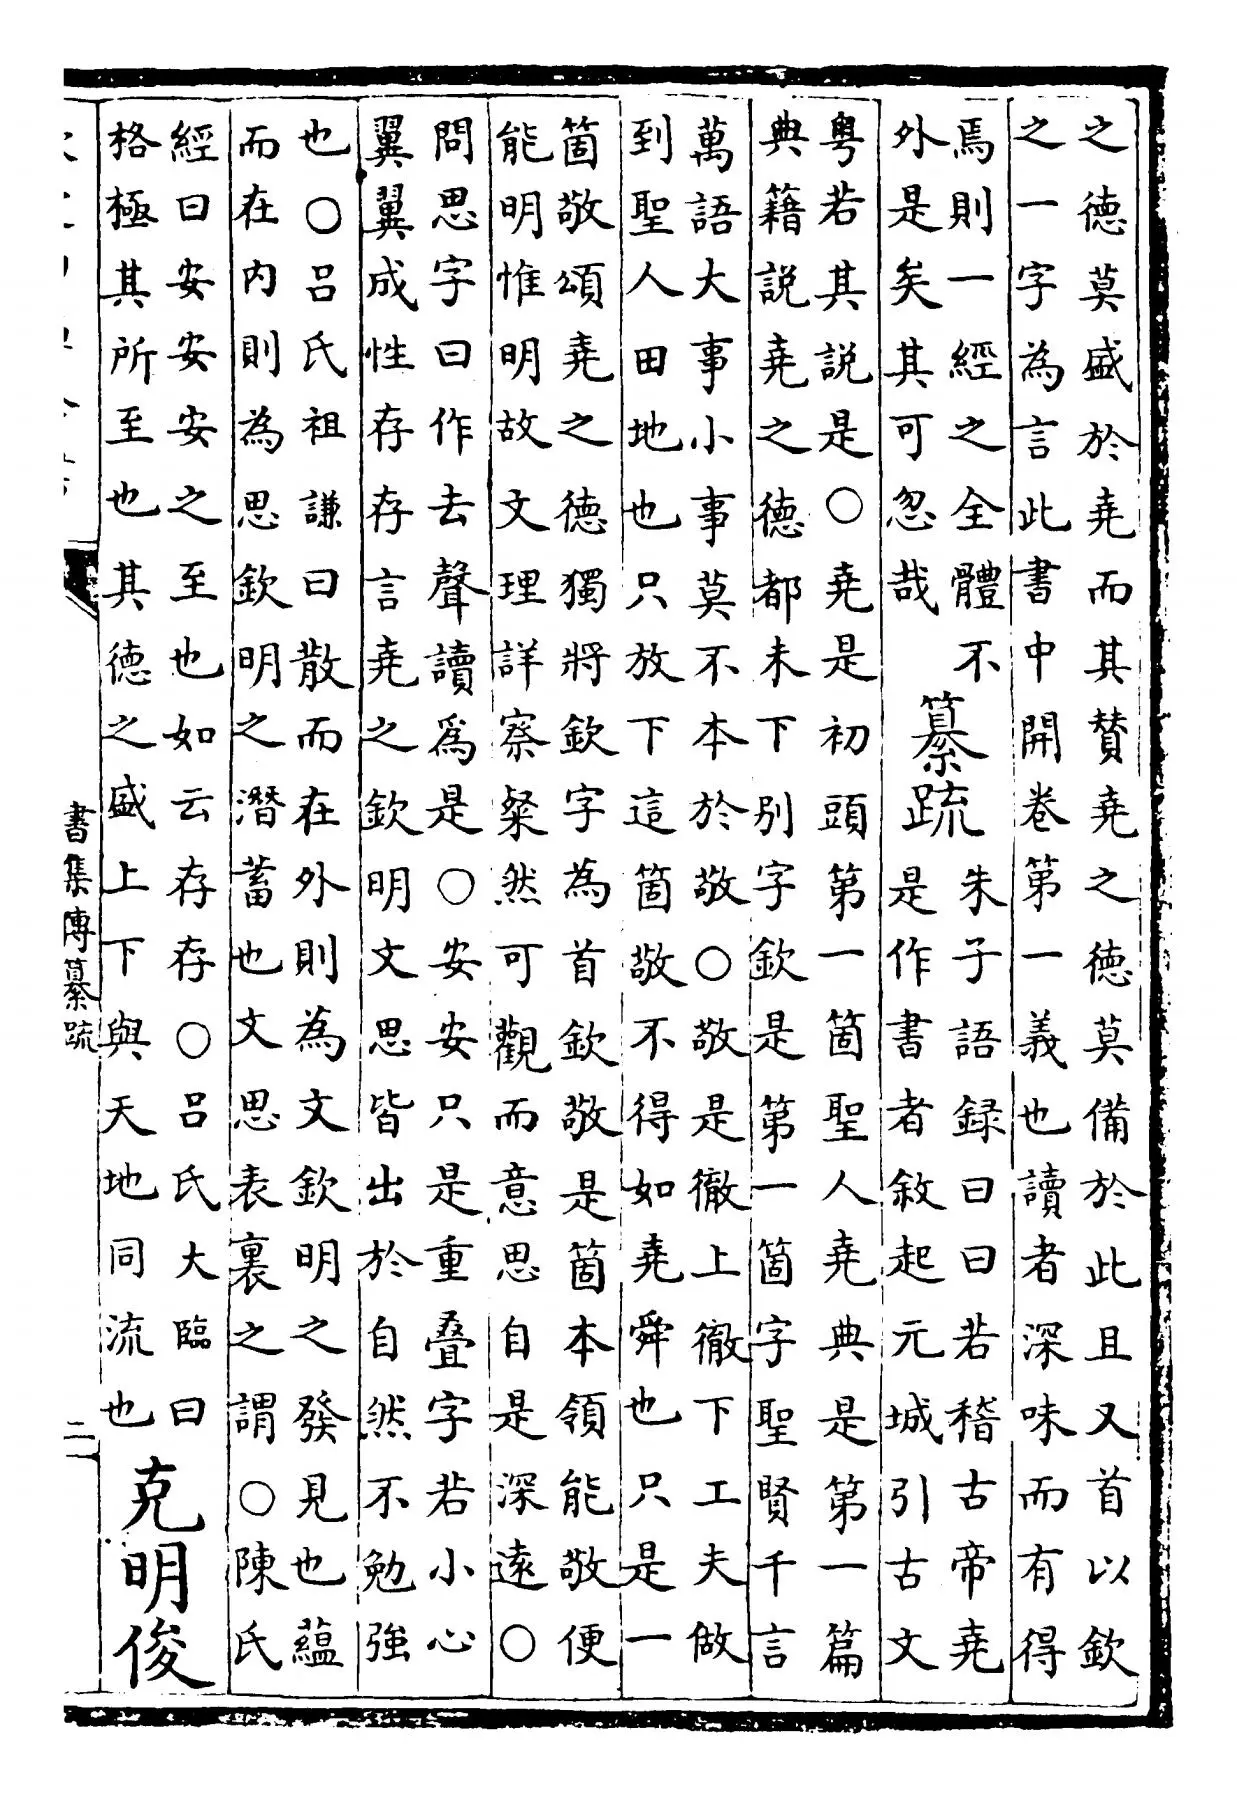 之德莫盛於堯而其賛堯之德莫備於此且又首以欽
之一字為言此書中開卷第一義也讀者深味而有得
焉則一經之全體不
外是矣其可忽哉
纂疏
朱子語録曰曰若稽古帝堯
是作書者敘起元城引古文
粤若其説是○堯是初頭第一箇聖人堯典是第一篇
典籍説堯之德都未下别字欽是第一箇字聖賢千言
萬語大事小事莫不本於敬○敬是徹上徹下工夫做
到聖人田地也只放下這箇敬不得如堯舜也只是一
箇敬頌堯之德獨將欽字為首欽敬是箇本領能敬便
能明惟明故文理詳察粲然可觀而意思自是深遠○
問思字曰作去聲讀爲是○安安只是重疊字若小心
翼翼成性存存言堯之欽明文思皆出於自然不勉強
也○吕氏祖謙曰散而在外則為文欽明之發見也蘊
而在内則為思欽明之潛蓄也文思表裏之謂○陳氏
經曰安安安之至也如云存存○吕氏大臨曰
格極其所至也其德之盛上下與天地同流也
克明俊
書集傳纂疏
二